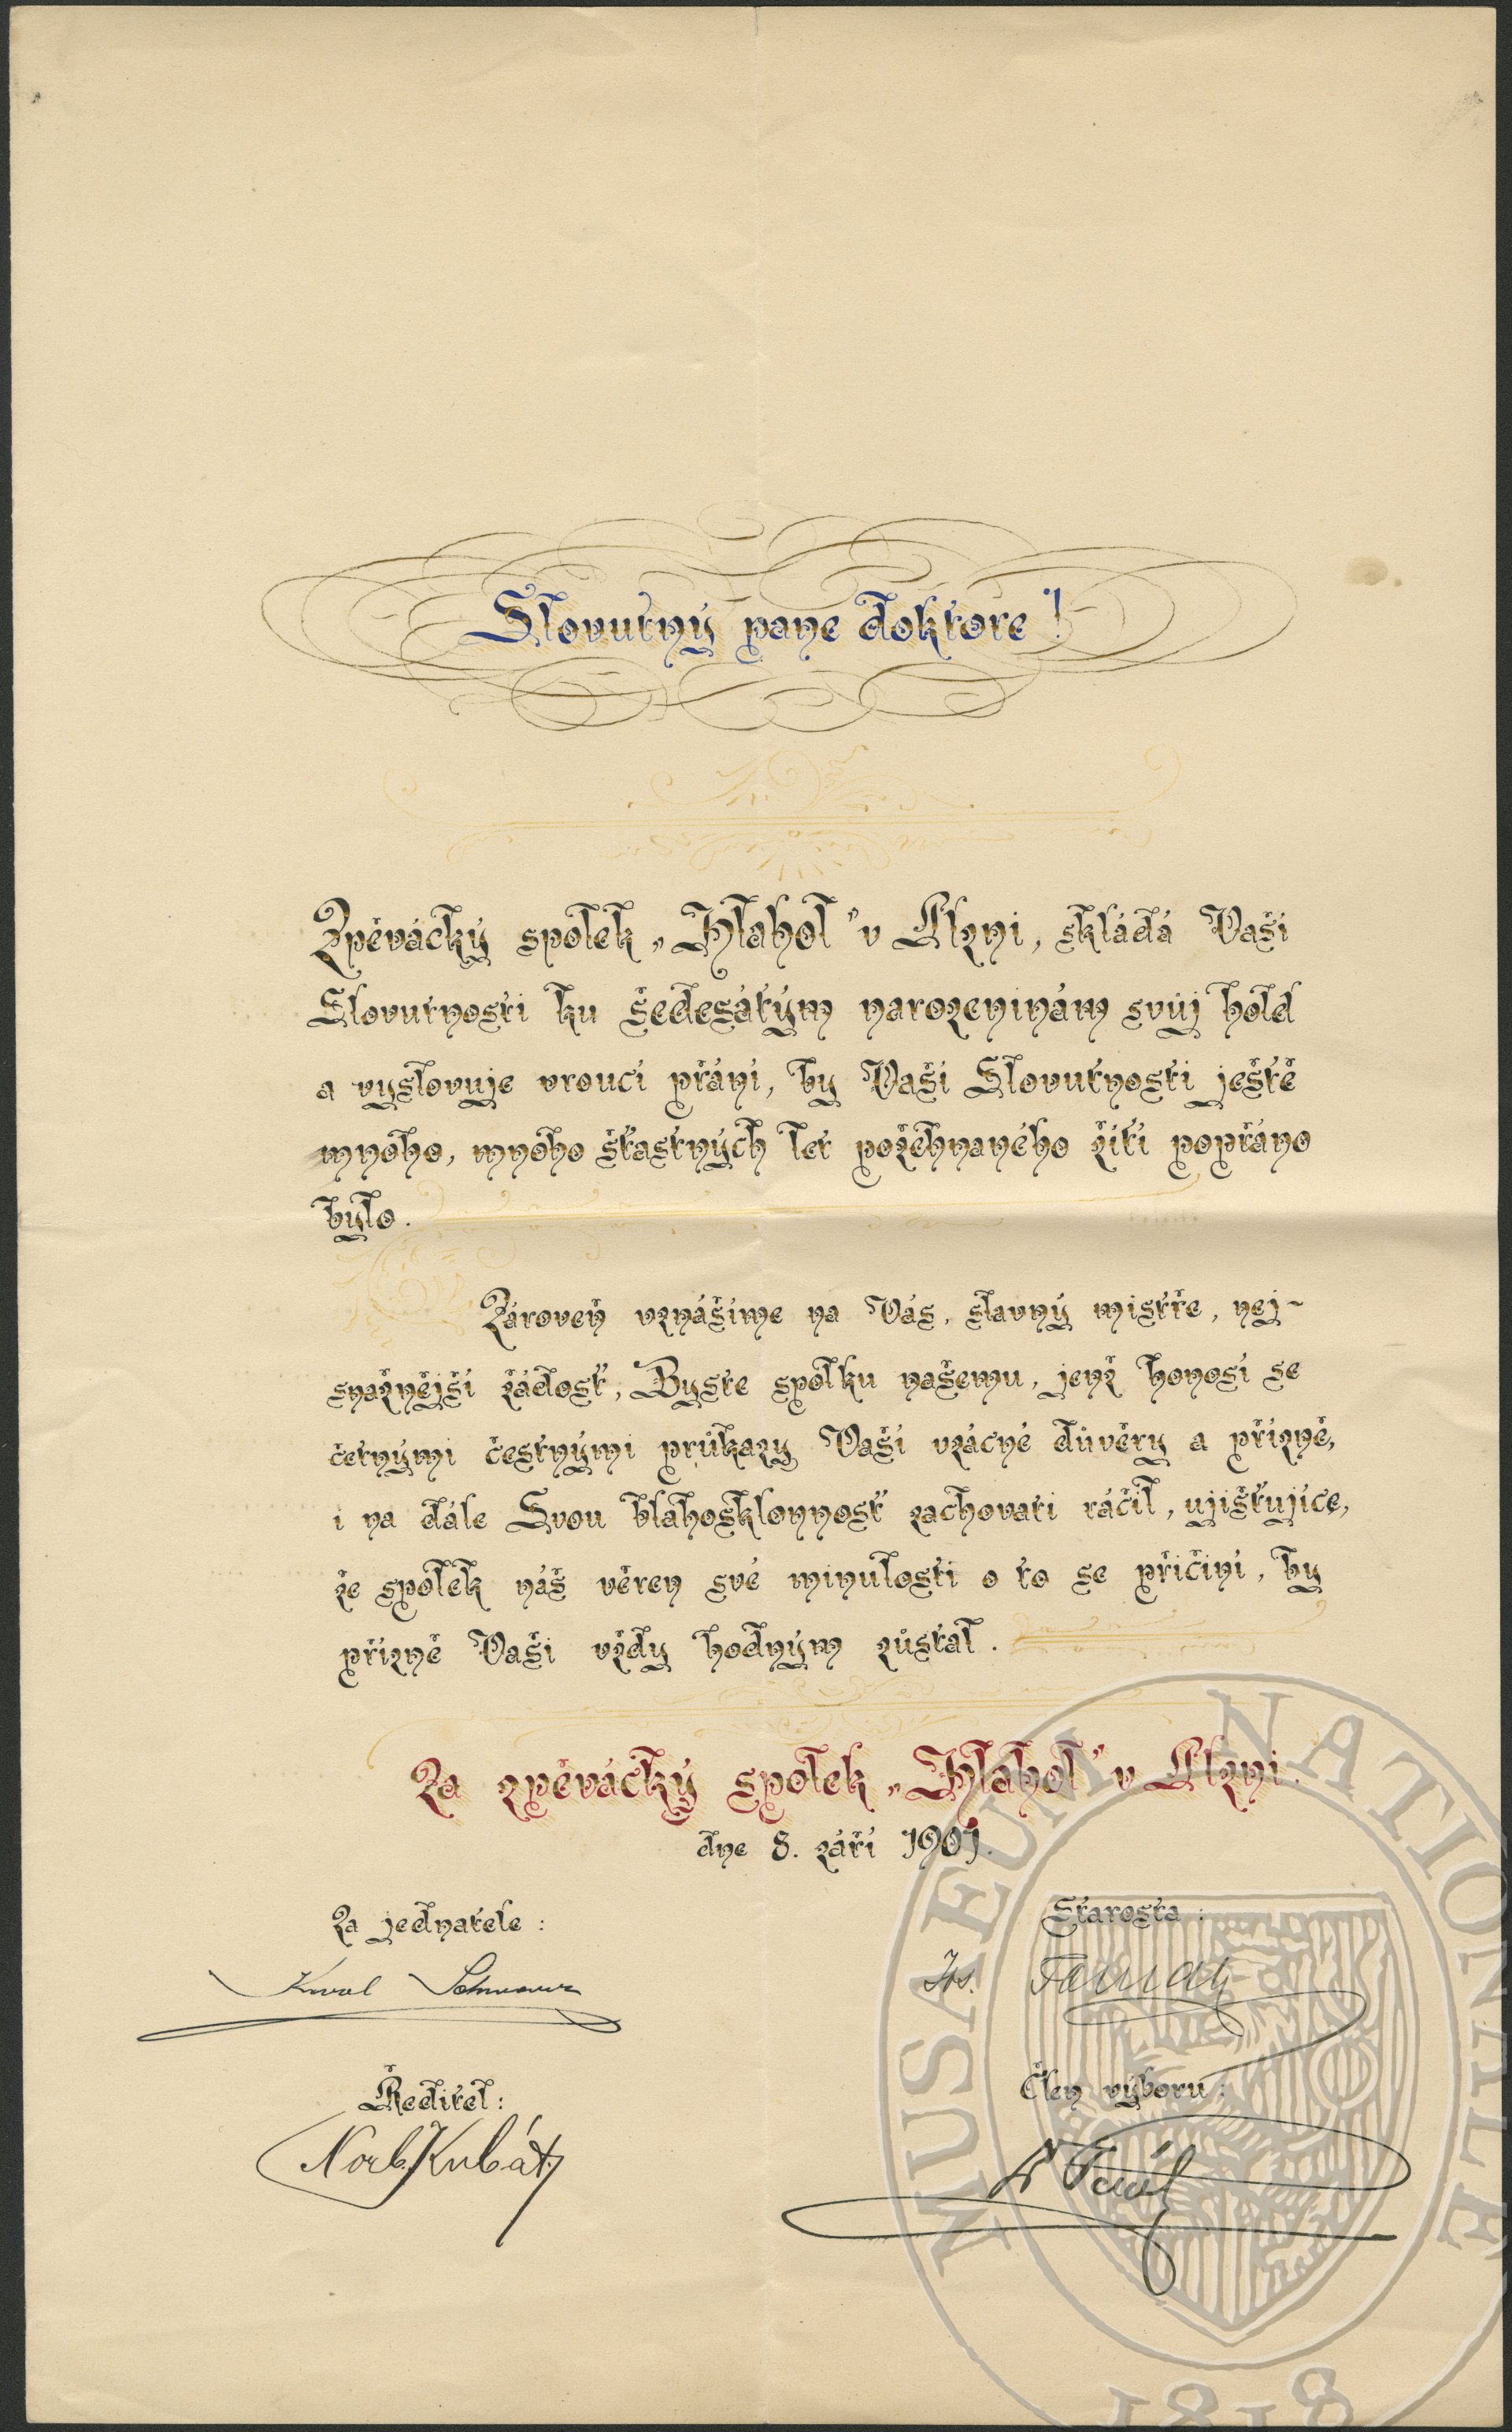 Slovutný pane doktore!
Zpěvácký spolek „Hlahol“ v Plzni, skládá Vaší
Slovutnosti ku šedesátým narozeninám svůj hold
a vyslovuje vroucí přání, by Vaší Slovutnosti ještě
mnoho, mnoho šťastných let požehnaného žití popřáno
bylo.
Zároveň vznášíme na Vás, slavný mistře, nej-
snažnější žádosť, Byste spolku našemu, jenž honosí se
četnými čestnými průkazy Vaší vzácné důvěry a přízně,
i na dále Svou blahosklonnosť zachovati ráčil, ujišťujíce,
že spolek náš věren své minulosti o to se přičiní, by
přízně Vaší vždy hodným zůstal.
Za zpěvácký spolek „Hlahol“ v Plzni.
dne 8. září 1901.
Za jednatele:
Starosta:
Karel
Jos.
Ředitel:
Člen výboru:
Norb. Kubát
MUSAEUM NATIONALE
1818